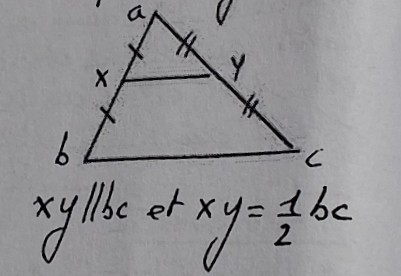 a
X Y
b c
xy//bc et xy = 1/2 bc